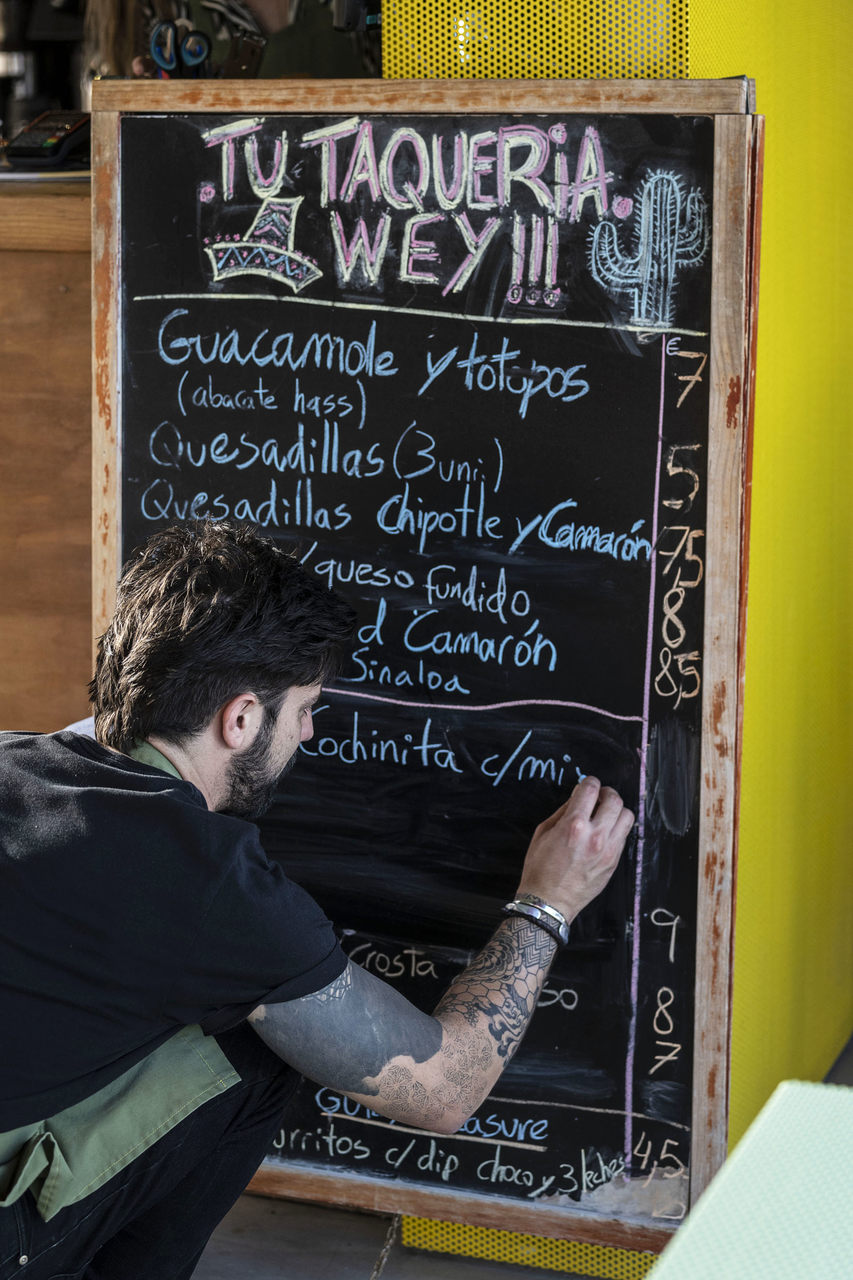 TU TAQUERIA
WEY!!!
Guacamole y totopos € 7
(abacate hass)
Quesadillas (3 uni.) 5
Quesadillas Chipotle y Camarón 7,5
/queso fundido 8
Camarón 8,5
Sinaloa
Cochinita c/mi
9
Crosta
8
7
asure
urritos c/dip choco y 3 leches 4,5